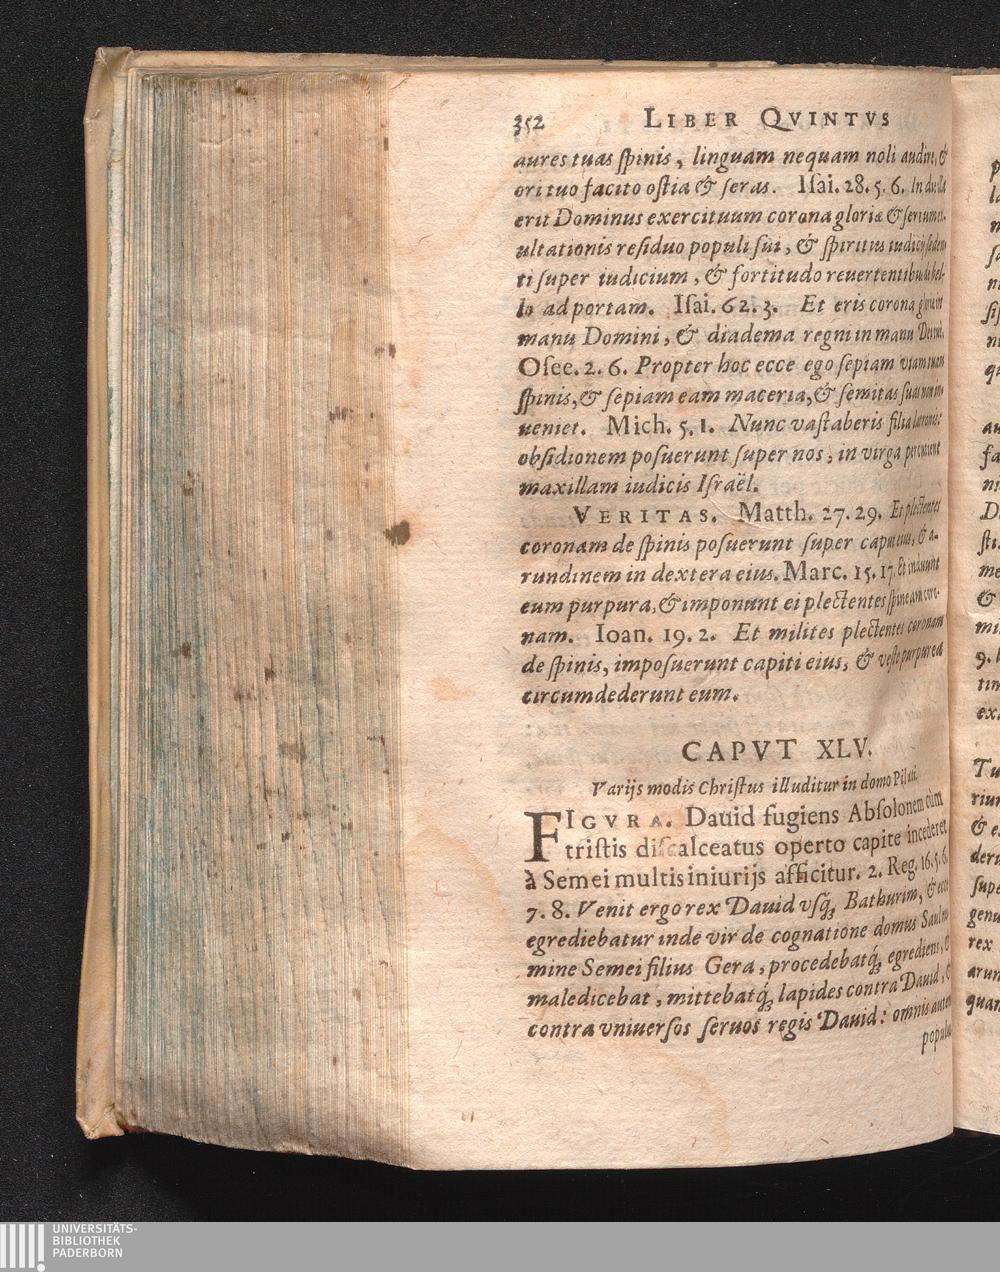 352 LIBER QVINTVS
aures tuas ſpinis, linguam nequam noli audire, &
ori tuo facito oſtia & ſeras. Iſai. 28. 5. 6. In die illa
erit Dominus exercituum corona gloriæ & ſertum ex-
ultationis reſiduo populi ſui, & ſpiritus iudicij ſeden
ti ſuper iudicium, & fortitudo reuertentibus de bel-
lo ad portam. Iſai. 62. 3. Et eris corona gloriæ in
manu Domini, & diadema regni in manu Dei tui.
Oſee. 2. 6. Propter hoc ecce ego ſepiam viam tuam
ſpinis, & ſepiam eam maceria, & ſemitas ſuas non in-
ueniet. Mich. 5. 1. Nunc vaſtaberis filia latronis:
obſidionem poſuerunt ſuper nos, in virga percutient
maxillam iudicis Iſraël.
VERITAS. Matth. 27. 29. Et plectentes
coronam de ſpinis poſuerunt ſuper caput eius, & a-
rundinem in dextera eius. Marc. 15. 17. Et induunt
eum purpura, & imponunt ei plectentes ſpineam coro-
nam. Ioan. 19. 2. Et milites plectentes coronam
de ſpinis, impoſuerunt capiti eius, & veſte purpurea
circumdederunt eum.
CAPVT XLV.
Varijs modis Chriſtus illuditur in domo Pilati.
FIGVRA. Dauid fugiens Abſolonem cùm
triſtis diſcalceatus operto capite incederet
à Semei multis iniurijs afficitur. 2. Reg. 16. 5. 6.
7. 8. Venit ergo rex Dauid vſq́; Bathurim, & ecce
egrediebatur inde vir de cognatione domus Saul no
mine Semei filius Gera, procedebatq́; egrediens, &
maledicebat, mittebatq́; lapides contra Dauid, &
contra vniuerſos ſeruos regis Dauid: omnis autem
populus
UNIVERSITÄTS-
BIBLIOTHEK
PADERBORN